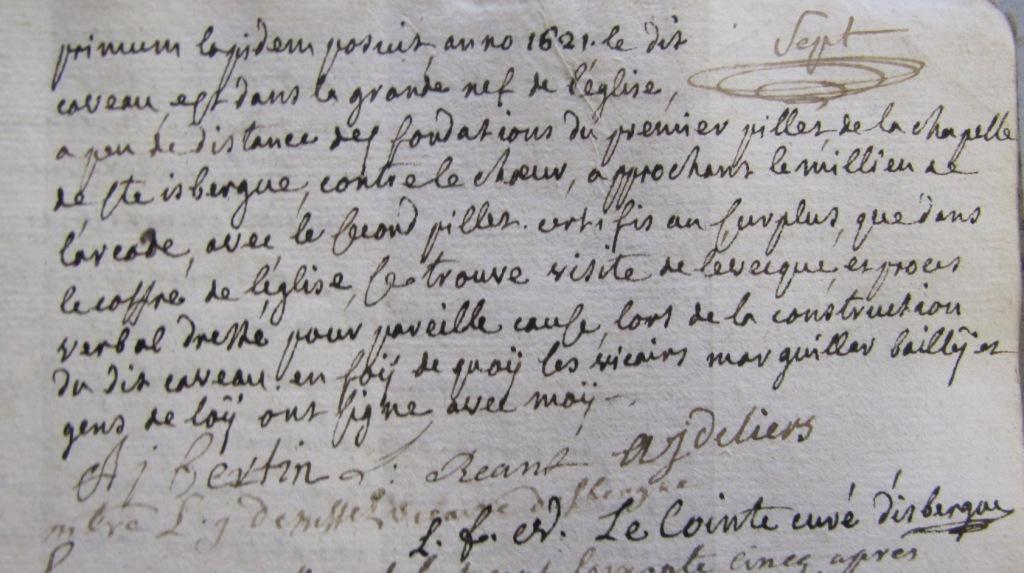 primum lapidem posuit anno 1621. le dit
Sept
caveau est dans la grande nef de l'église,
a peu de distance des fondations du premier pillet de la chapelle
de ste isbergue, contre le chœur, approchant le millieu de
l'arcade, avec le second pillet. certifis au surplus, que dans
le coffre de l'église, se trouve visite de l'evecque, et proces
verbal dressé pour pareille cause, lors de la construction
du dit caveau. en foÿ de quoÿ les vicaires marguillar baillÿ et
gens de loÿ ont signé avec moÿ
A j Bertin Reant a j deliers
L. j vicaire d'isbergue
L. f. Le Cointe curé d'isbergue
soixante cincq apres